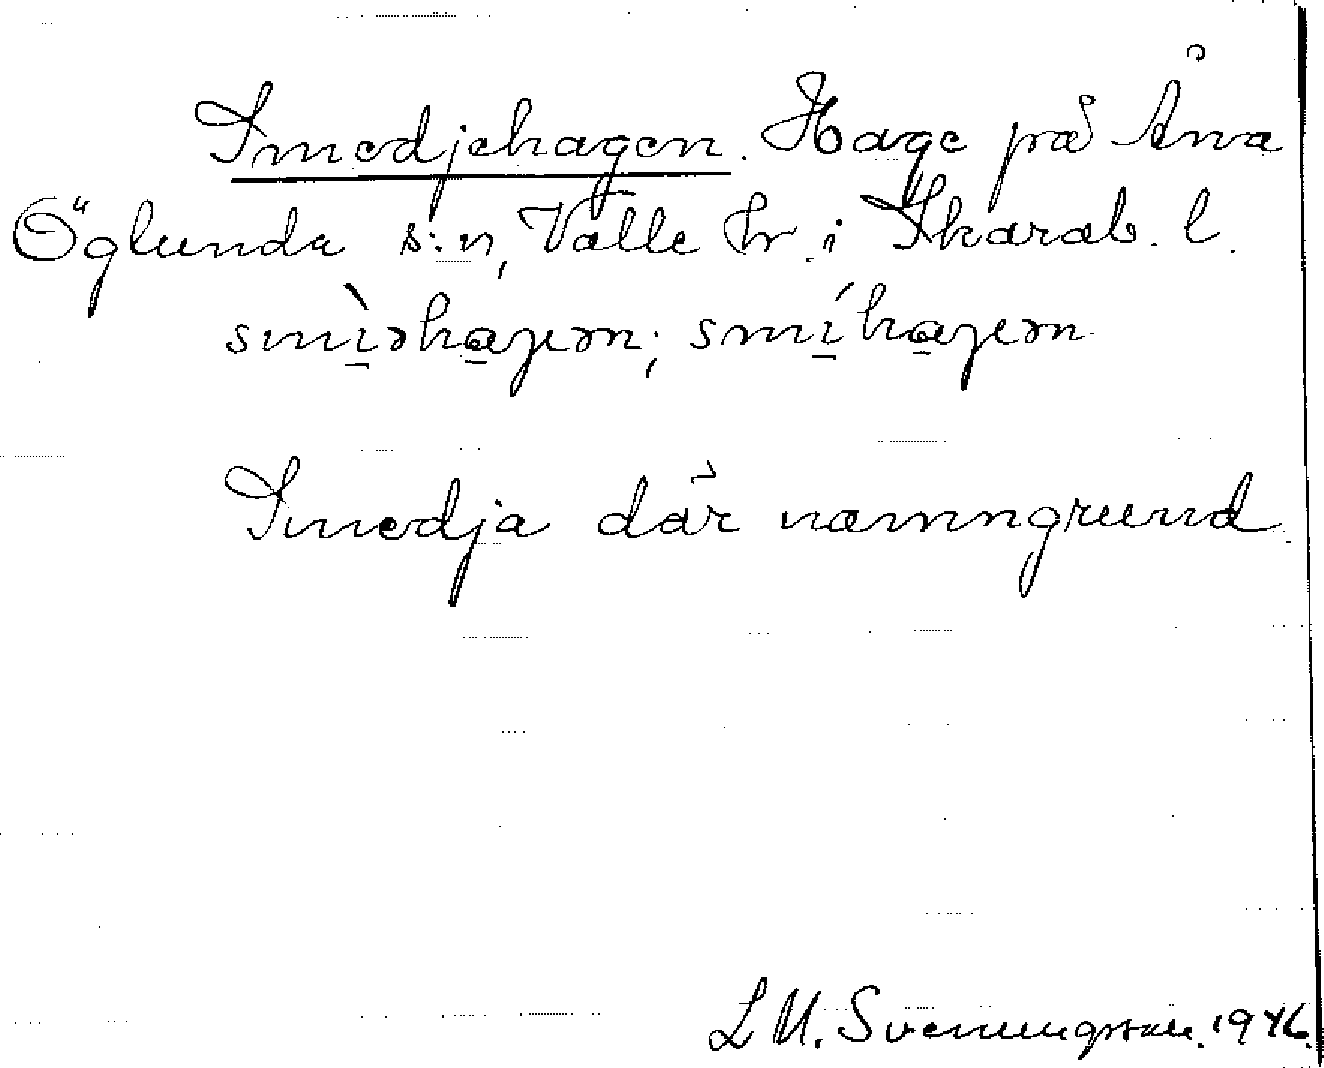 Smedjehagen. Hage på Åna
Öglunda s:n, Valle hr i Skarab. l.
smìəhaɡen; smíhaɡen
Smedja där namngrund.
L M. Svenungsson. 1946.